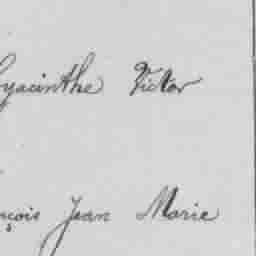 yacinthe Victor
çois Jean Marie